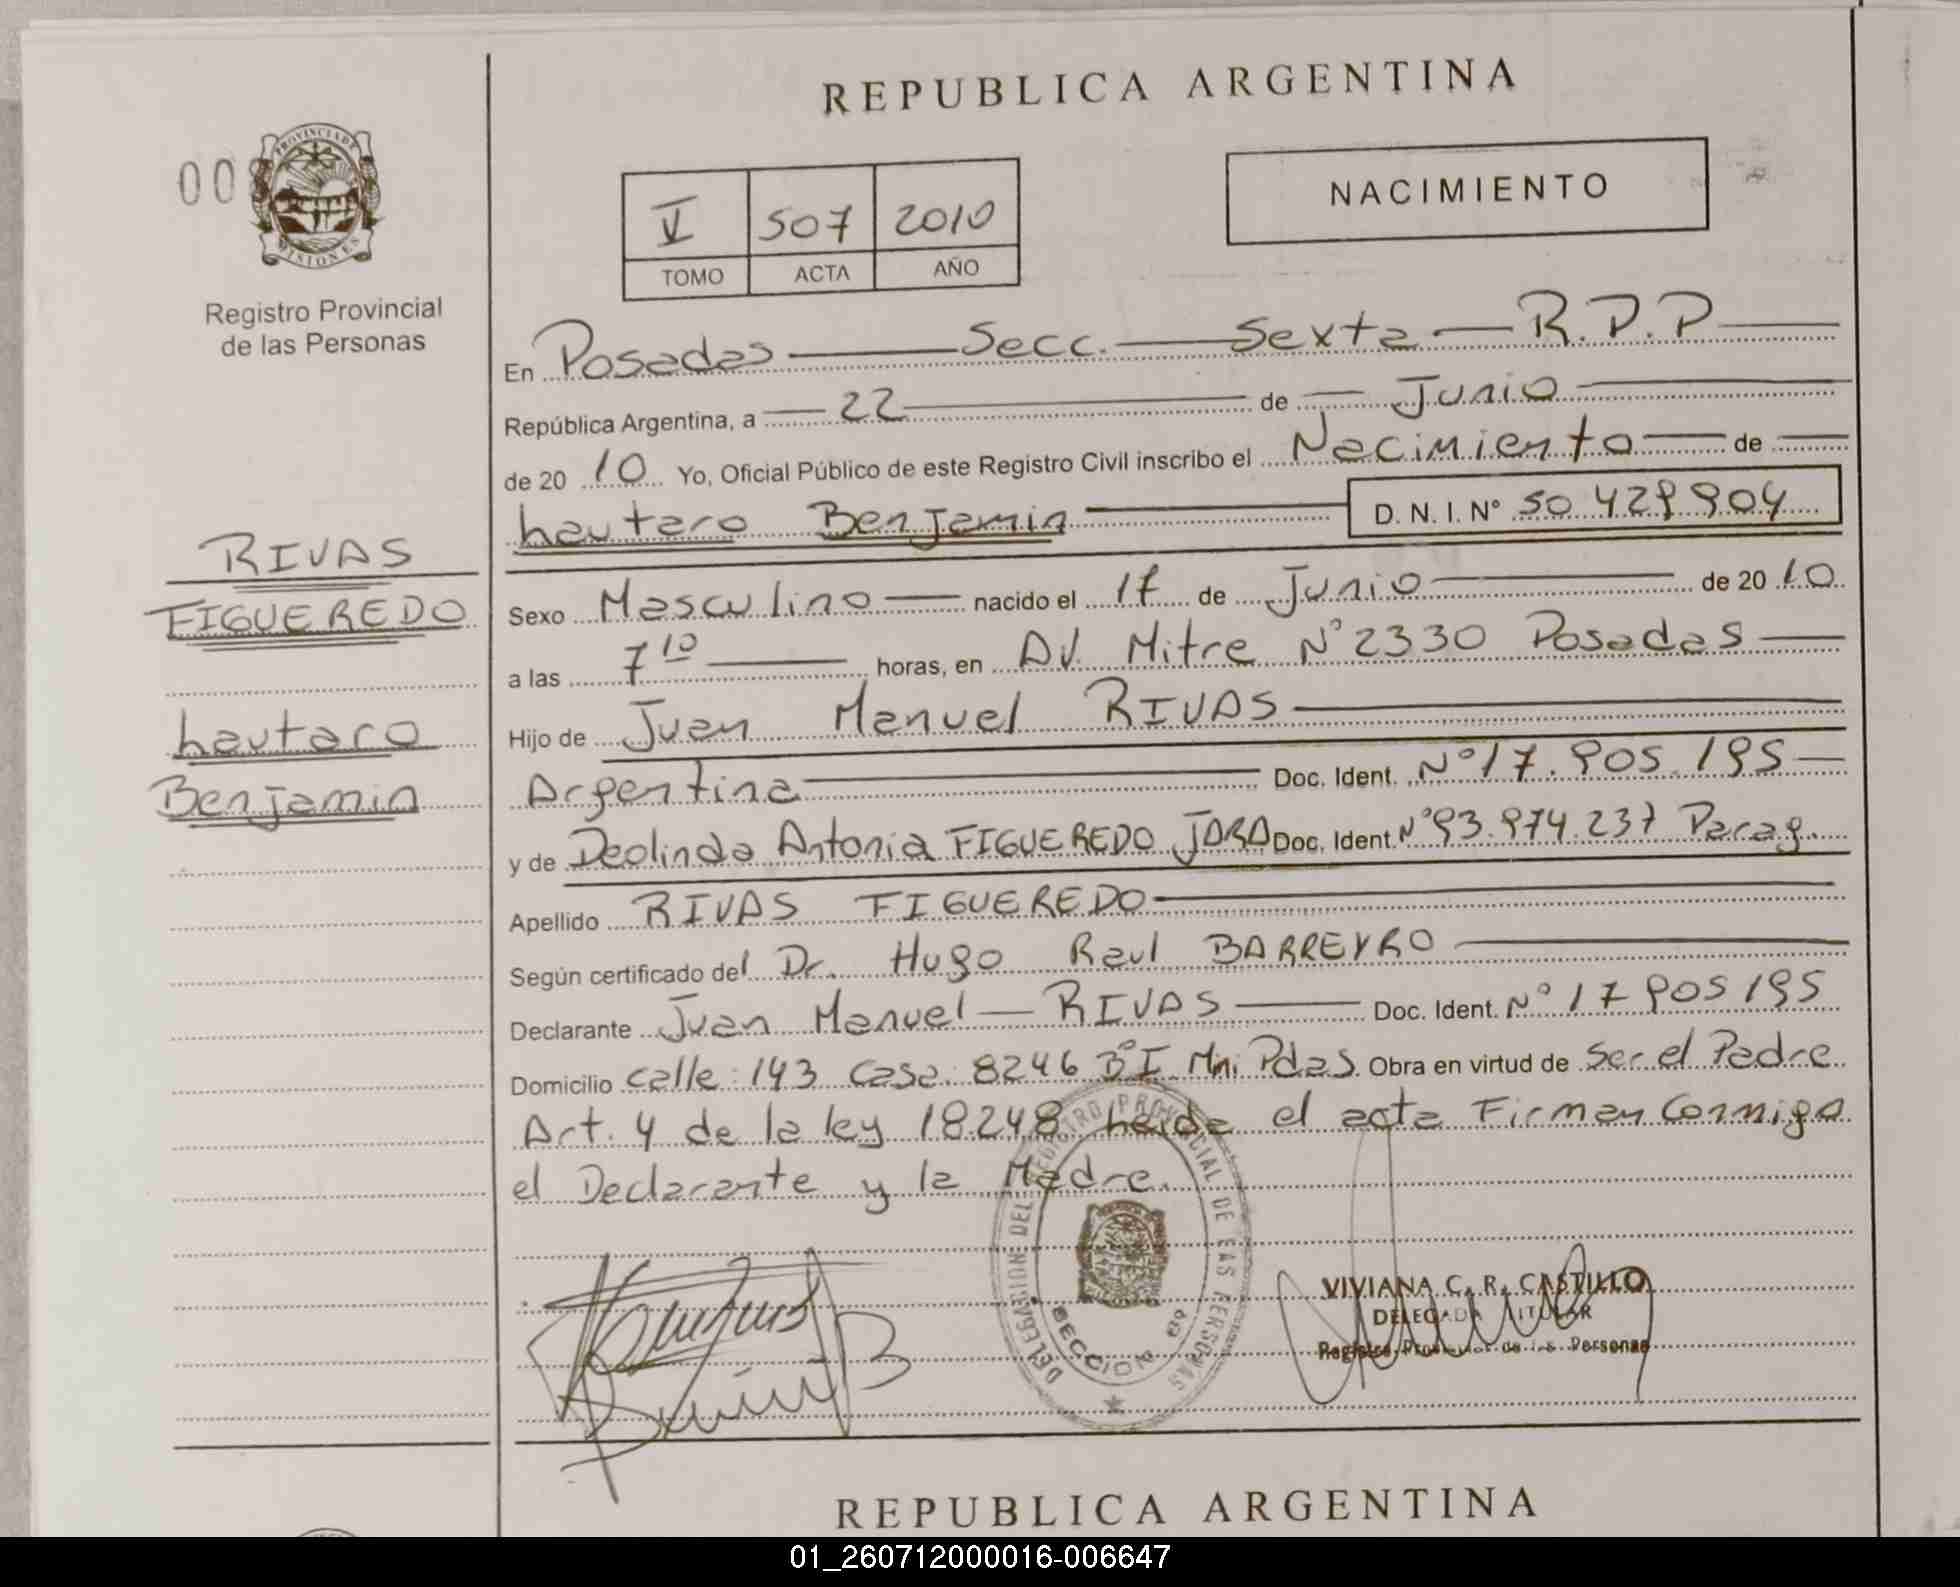 REPUBLICA ARGENTINA
00
PROVINCIA DE
MISIONES
Registro Provincial
de las Personas
NACIMIENTO
V 507 2010
TOMO ACTA AÑO
En Posadas Secc. Sexta R.P.P
República Argentina, a 22 de Junio
de 2010 Yo, Oficial Público de este Registro Civil inscribo el Nacimiento de
Lautaro Benjamin D. N. I. Nº 50 429 904
RIVAS
FIGUEREDO
Lautaro
Benjamin
Sexo Masculino nacido el 17 de Junio de 2010
a las 7 10 horas, en AV. Mitre Nº 2330 Posadas
Hijo de Juan Manuel RIVAS
Argentina Doc. Ident. Nº 17.905.195
y de Deolinda Antonia FIGUEREDO JARA Doc. Ident. Nº 93.974.237 Parag.
Apellido RIVAS FIGUEREDO
Según certificado del Dr. Hugo Raul BARREYRO
Declarante Juan Manuel RIVAS Doc. Ident. Nº 17 905 195
Domicilio calle: 143 Casa: 8246 Bº I. Mni. Pdas. Obra en virtud de Ser el Padre
Art. 4 de la ley 18248 Leida el acta Firman Conmigo
el Declarante y la Madre.
DELEGACION DEL REGISTRO PROVINCIAL DE LAS PERSONAS
SECCION 6º
VIVIANA C. R. CASTILLO
DELEGADA TITULAR
Registro Provincial de las Personas
REPUBLICA ARGENTINA
01_260712000016-006647